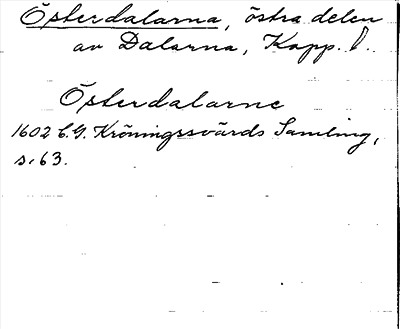 Österdalarna, östra delen
av Dalarna, Kopp. l.
Österdalarne
1602 C.G. Kröningssvärds Samling,
s. 63.